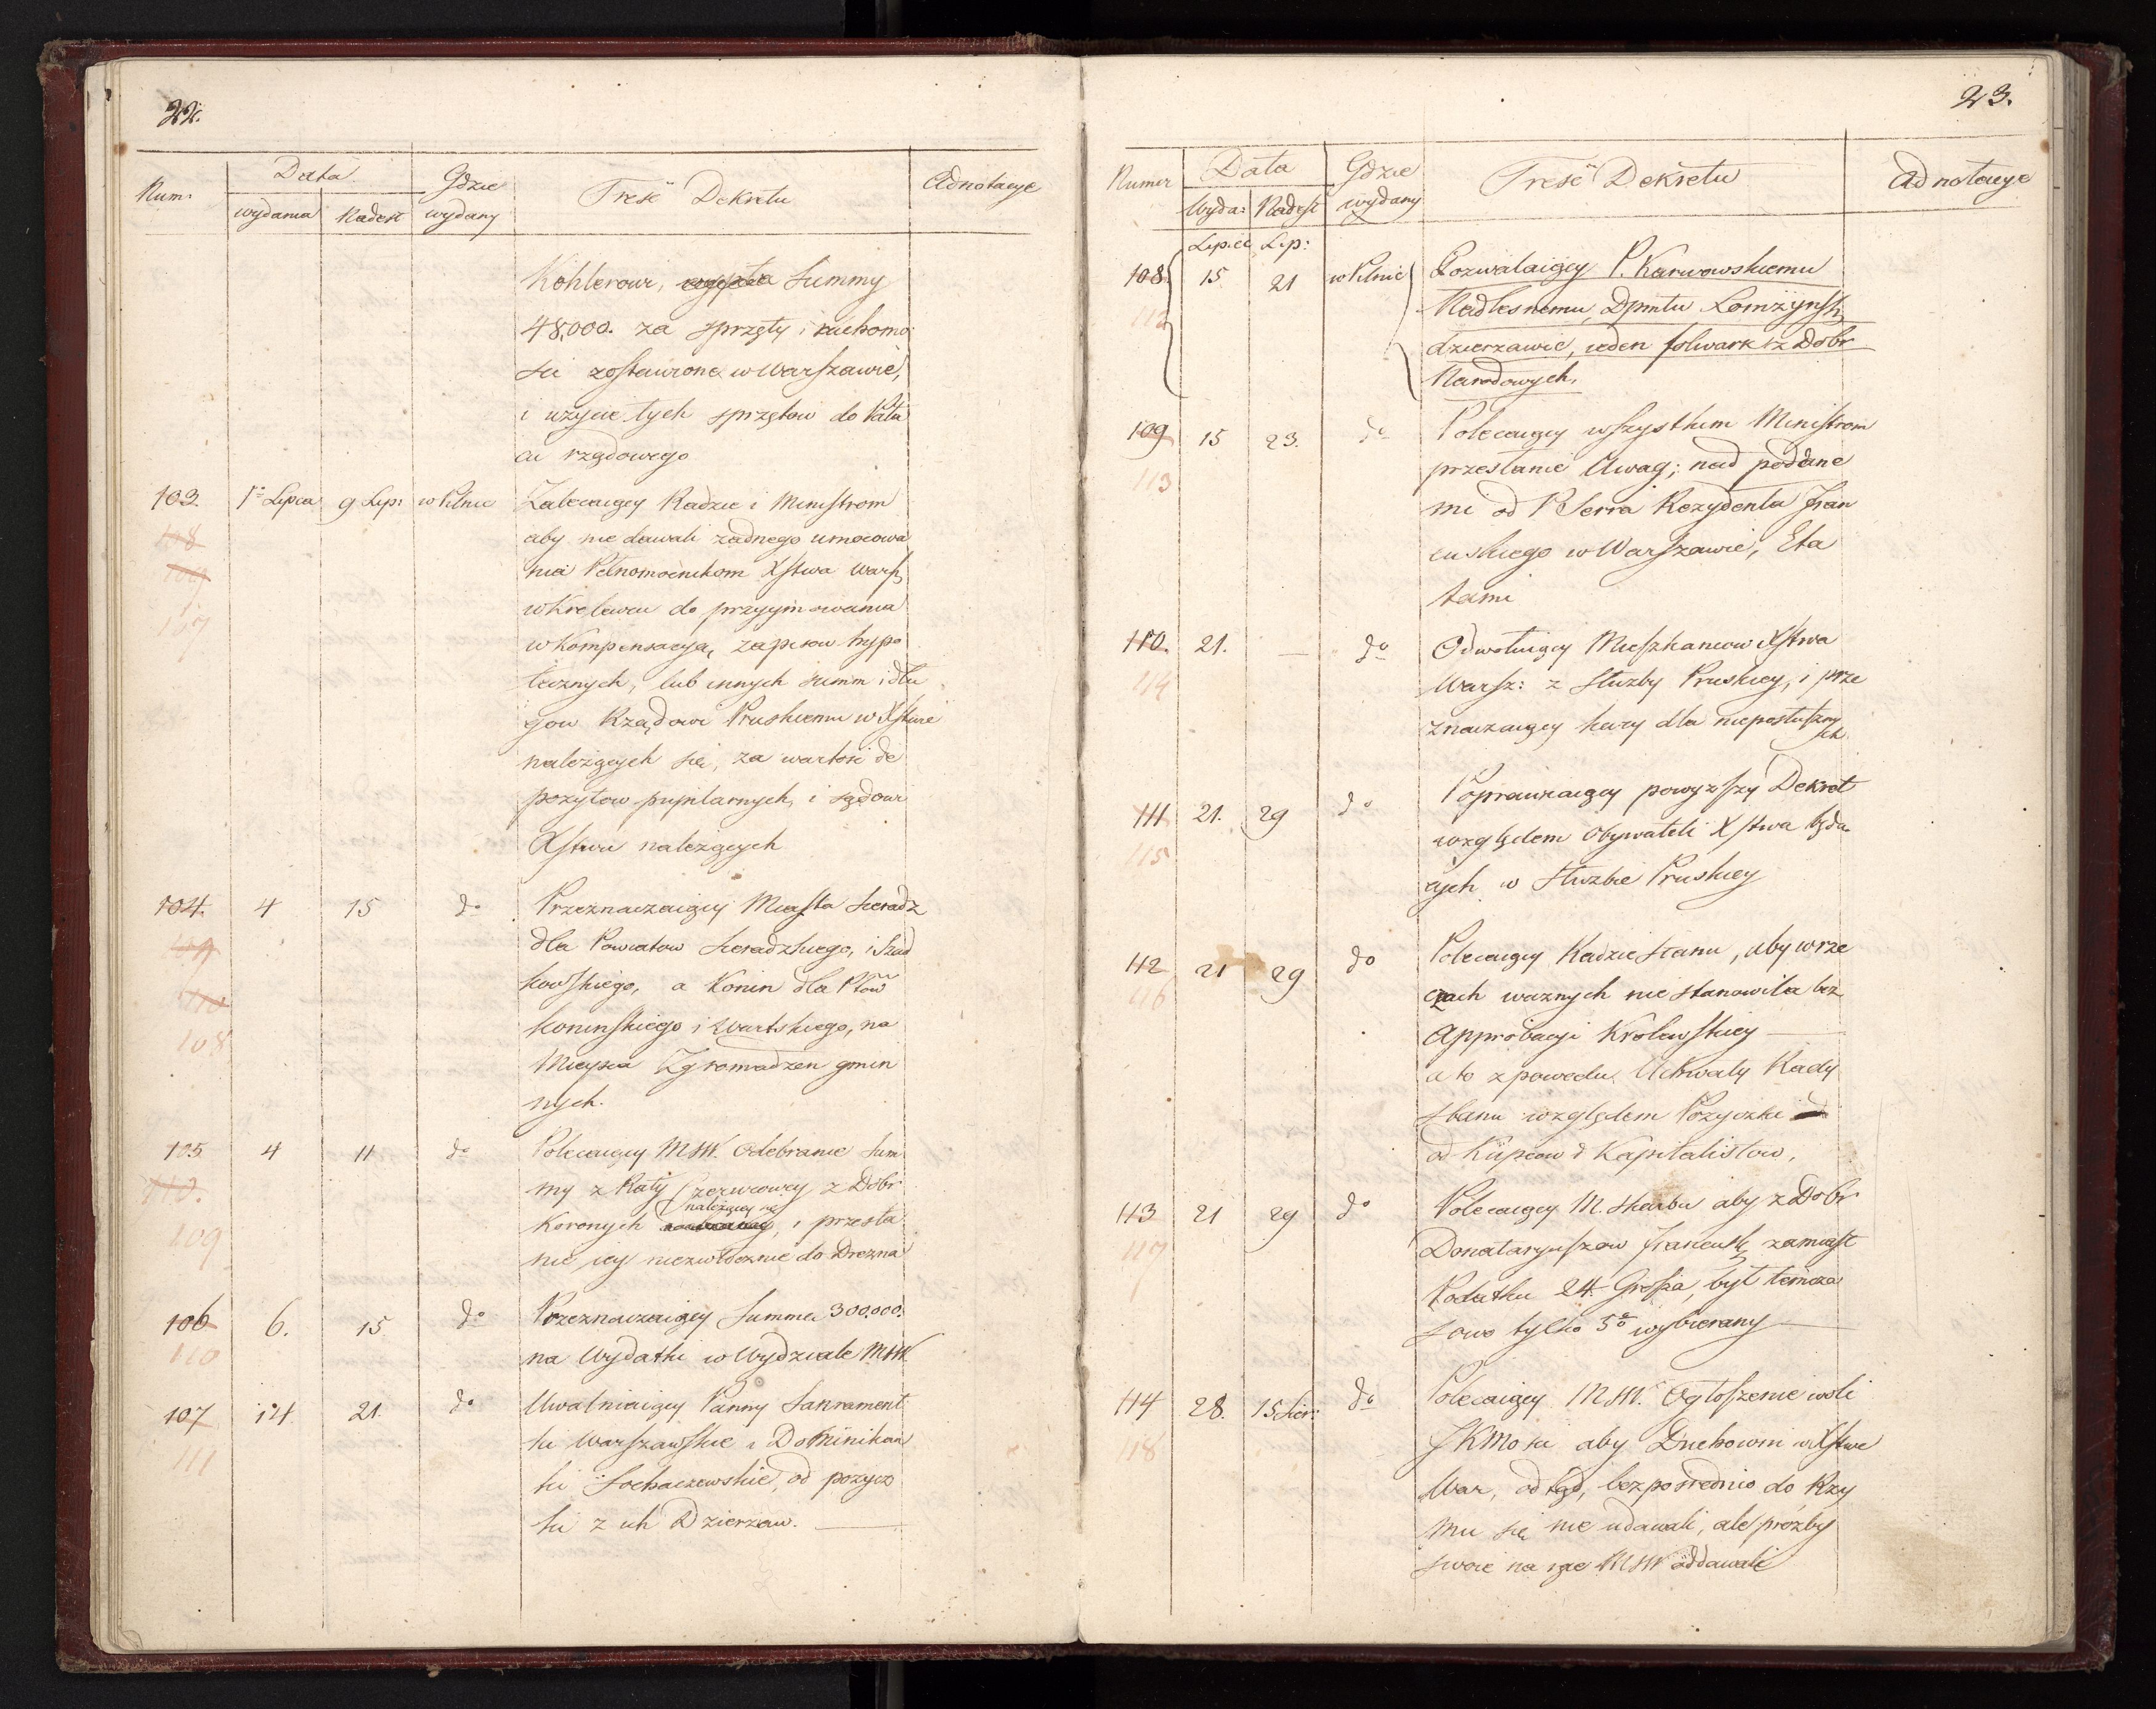 22.
Num: Data Gdzie wydany Treść Dekretu Adnotacye
wydania Nadesł
Köhlerowi, summy
48,000. za sprzęty i ruchomo
sci zostawione w Warszawie,
i użycie tych sprzętow do Pała
cu rządowego
103. 1o Lipca 9 Lip: w Pilnic Zalecaiący Radzie i Ministrom
118 aby nie dawali żadnego umocowa
109 nia Pełnomocnikom Xstwa Warsz
107 w Krolewcu do przyymowania
w Kompensacyą, zapisow hypo
tecznych, lub innych summ i dłu
gow Rządowi Pruskiemu w Xstwie
należących się, za wartość de
pozytow pupilarnych, i sądowi
Xstwu należących
104. 4 15 do Przeznaczaiący Miasta Sieradz
119 dla Powiatow Sieradzkiego, i Szad
110 kowskiego, a Konin dla Ptow
108 konińskiego i Wartskiego, na
Mieysca Zgromadzen gmin
nych.
105 4 11 do Polecaiący MSW. Odebranie Sum
110. my z Raty Czerwcowey z Dobr
należącey się
109 Koronych, i przesła
nie iey niezwłocznie do Drezna
106 6. 15 do Przeznaczaiący Summę 300,000.
110 na Wydatki w Wydziale MSW
107 14 21. do Uwalniaiący Panny Sakrament
111 ki Warszawskie i Dominikan
ki Sochaczewskie, od pożycz
ki z ich Dzierzaw.
23.
Numer Data Gdzie wydany Treść Dekretu Adnotacye
Wyda: Nadesł
Lipiec Lip:
108. 15 21 w Pilnic Pozwalaiący P. Karwowskiemu
112 Nadlesnemu, Dpmtu Łomżynsk,
dzierzawić, ieden folwark z Dobr
Narodowych.
109 15 23. do Polecaiący wszystkim Ministrom
113 przesłanie Uwag; nad podane
mi od P Serra Rezydenta Fran
cuskiego w Warszawie, Eta
tami
110. 21. — do Odwołuiący Mieszkancow Xstwa
114 Warsz: z służby Pruskiey, i prze
znaczaiący kary dla nieposłuszny
ch
111 21. 29 do Poprawiaiący powyższy Dekret
115 względem Obywateli Xstwa będą
cych w Służbie Pruskiey
112 21 29 do Polecaiący Radzie Stanu, aby w rze
116 czach ważnych nie stanowiła bez
Approbacyi Krolewskiey —
a to z powodu Uchwały Rady
Stanu względem Pożyczki
od Kupcow i Kapitalistow,
113 21 29 do Polecaiący M. Skarbu aby z Dobr
117 Donataryuszow Francusk, zamiast
Podatku 24. Grosza, był temcza
sowo tylko 5o wybierany —
114 28. 15 Sier: do Polecaiący MSW. Ogłoszenie woli
118 JKMości aby Duchowni w Xstwe
War, odtąd, bezpośrednio do Rzy
mu się nie udawali, ale prożby
swoie na ręce MSW oddawali